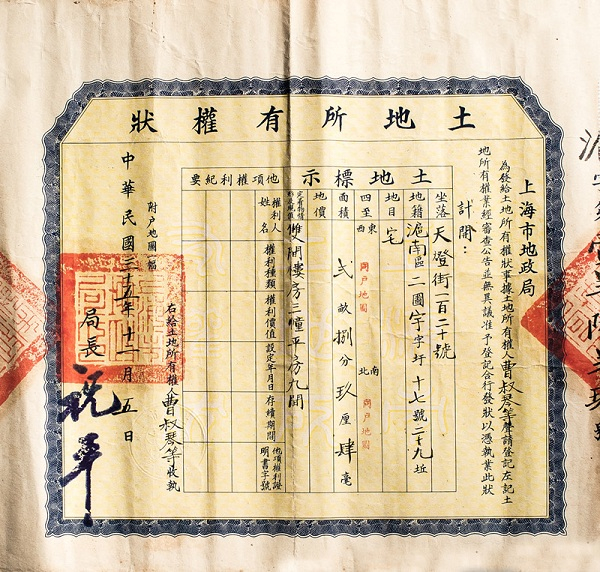 土地所有權狀
上海市地政局
為發給土地所有權狀事據土地所有權人曹叔琴等聲請登記左記土
地所有權業經審查公告並無異議准予登記合行發狀以憑執業此狀
計開：
土地標示
坐落 天燈街一百二十號
地籍 滬南區二圖字圩十七號二十九坵
地目 宅
四至 東 西 同戶地圖 南 北 同戶地圖
面積 弍畝捌分玖厘肆毫
地價
定着物情形及風值 雙間樓房三幢平房九間
他項權利紀要
權利人姓名
權利種類
權利價值
設定年月日
存續期間
他項權利證明書字號
右給土地所有權人曹叔琴等收執
附戶地圖幅
局長 祝平
中華民國三十五年十一月五日